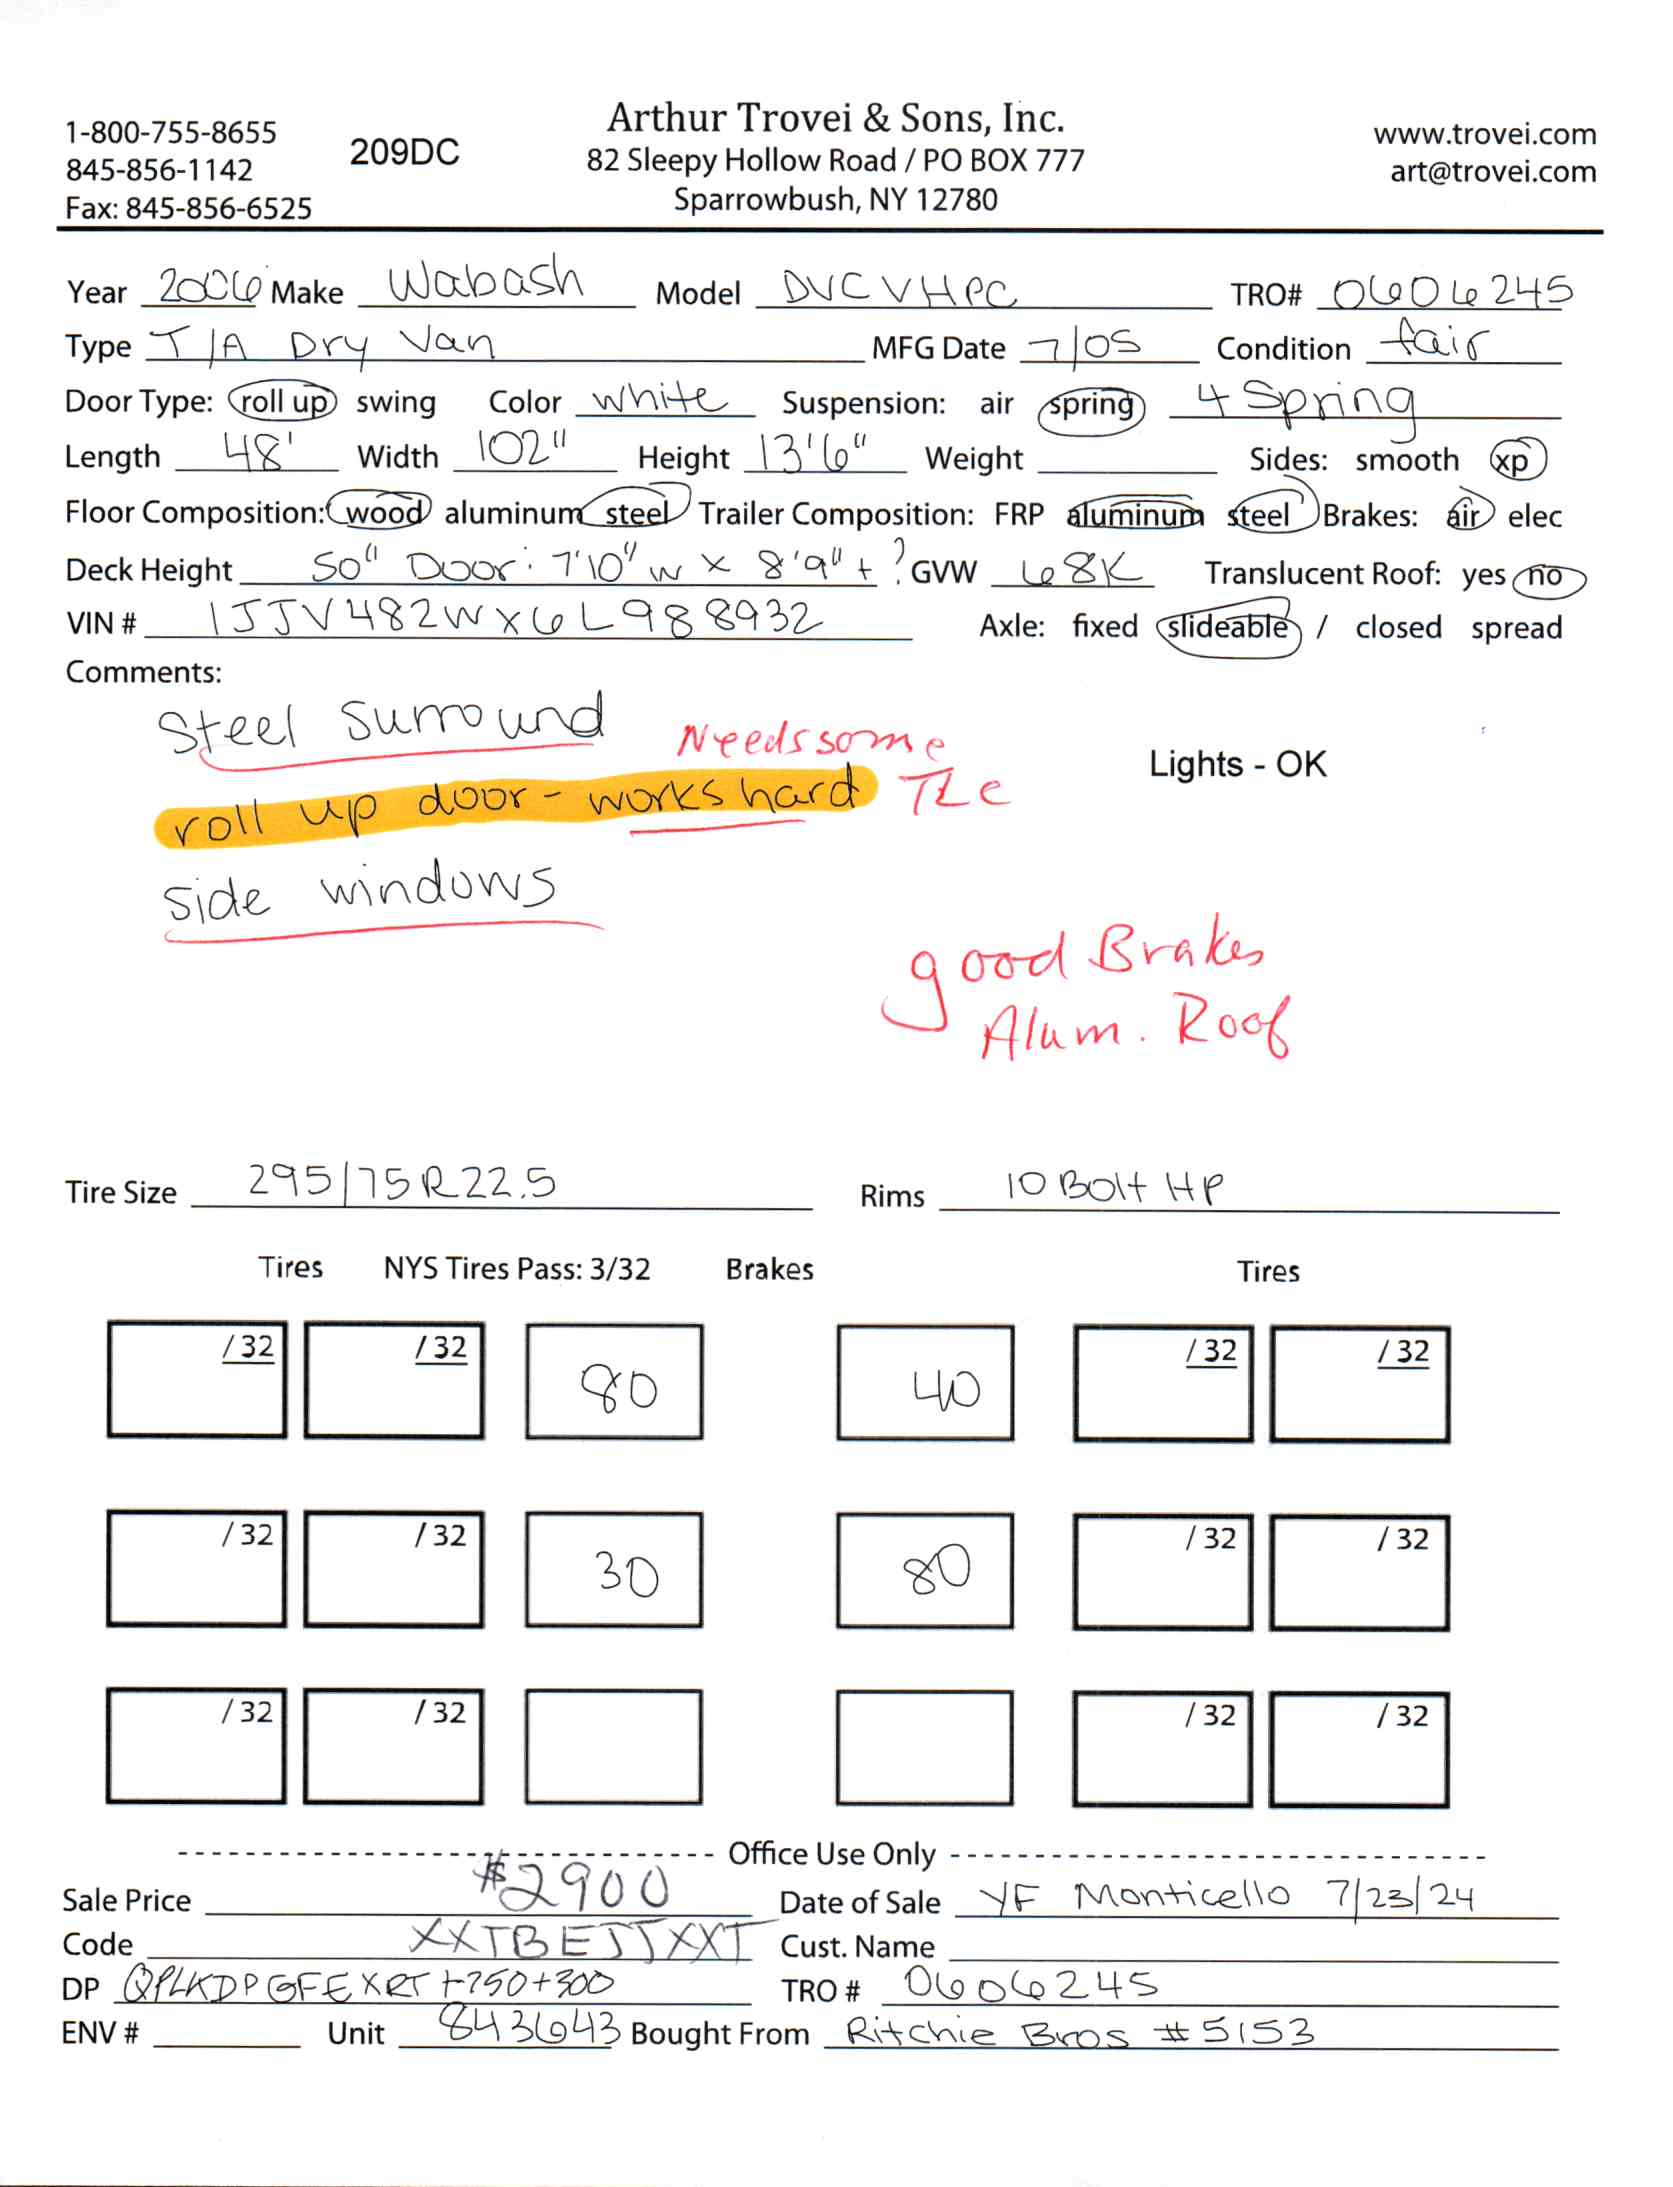 Arthur Trovei & Sons, Inc.
1-800-755-8655 209DC 82 Sleepy Hollow Road / PO BOX 777 www.trovei.com
845-856-1142 Sparrowbush, NY 12780 art@trovei.com
Fax: 845-856-6525
Year 2006 Make Wabash Model DVCVHPC TRO# 0606245
Type T/A Dry Van MFG Date 7/05 Condition fair
Door Type: roll up swing Color white Suspension: air spring 4 Spring
Length 48' Width 102" Height 13'6" Weight Sides: smooth xp
Floor Composition: wood aluminum steel Trailer Composition: FRP aluminum steel Brakes: air elec
Deck Height 50" Door: 7'10" w x 8'9" + ? GVW 68K Translucent Roof: yes no
VIN # 1JJV482WX6L988932 Axle: fixed slideable / closed spread
Comments:
Steel Surround
Needs some
Lights - OK
roll up door - works hard TLC
side windows
good Brakes
Alum. Roof
Tire Size 295/75R22.5 Rims 10 Bolt HP
Tires NYS Tires Pass: 3/32 Brakes Tires
/32 /32 80 40 /32 /32
/32 /32 30 80 /32 /32
/32 /32 /32 /32
Office Use Only
Sale Price $2900 Date of Sale YF Monticello 7/23/24
Code XXTBEJJXXT Cust. Name
DP QPLKDPGFEXRT +750+300 TRO # 0606245
ENV # Unit 843643 Bought From Ritchie Bros #5153